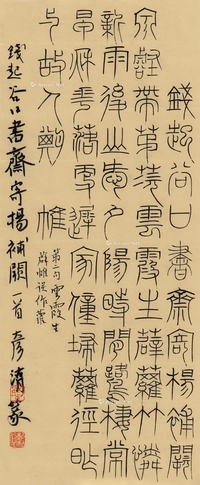 錢起谷口書齋寄楊補闕
泉壑帶茅茨雲霞生薜蘿竹憐
新雨後山愛夕陽時閒鷺棲常
早秋花落更遲家僮掃蘿徑昨
与故人期 帷
第二句雲霞生
薜帷誤作蘿
錢起谷口書齋寄楊補闕一首 彥 篆